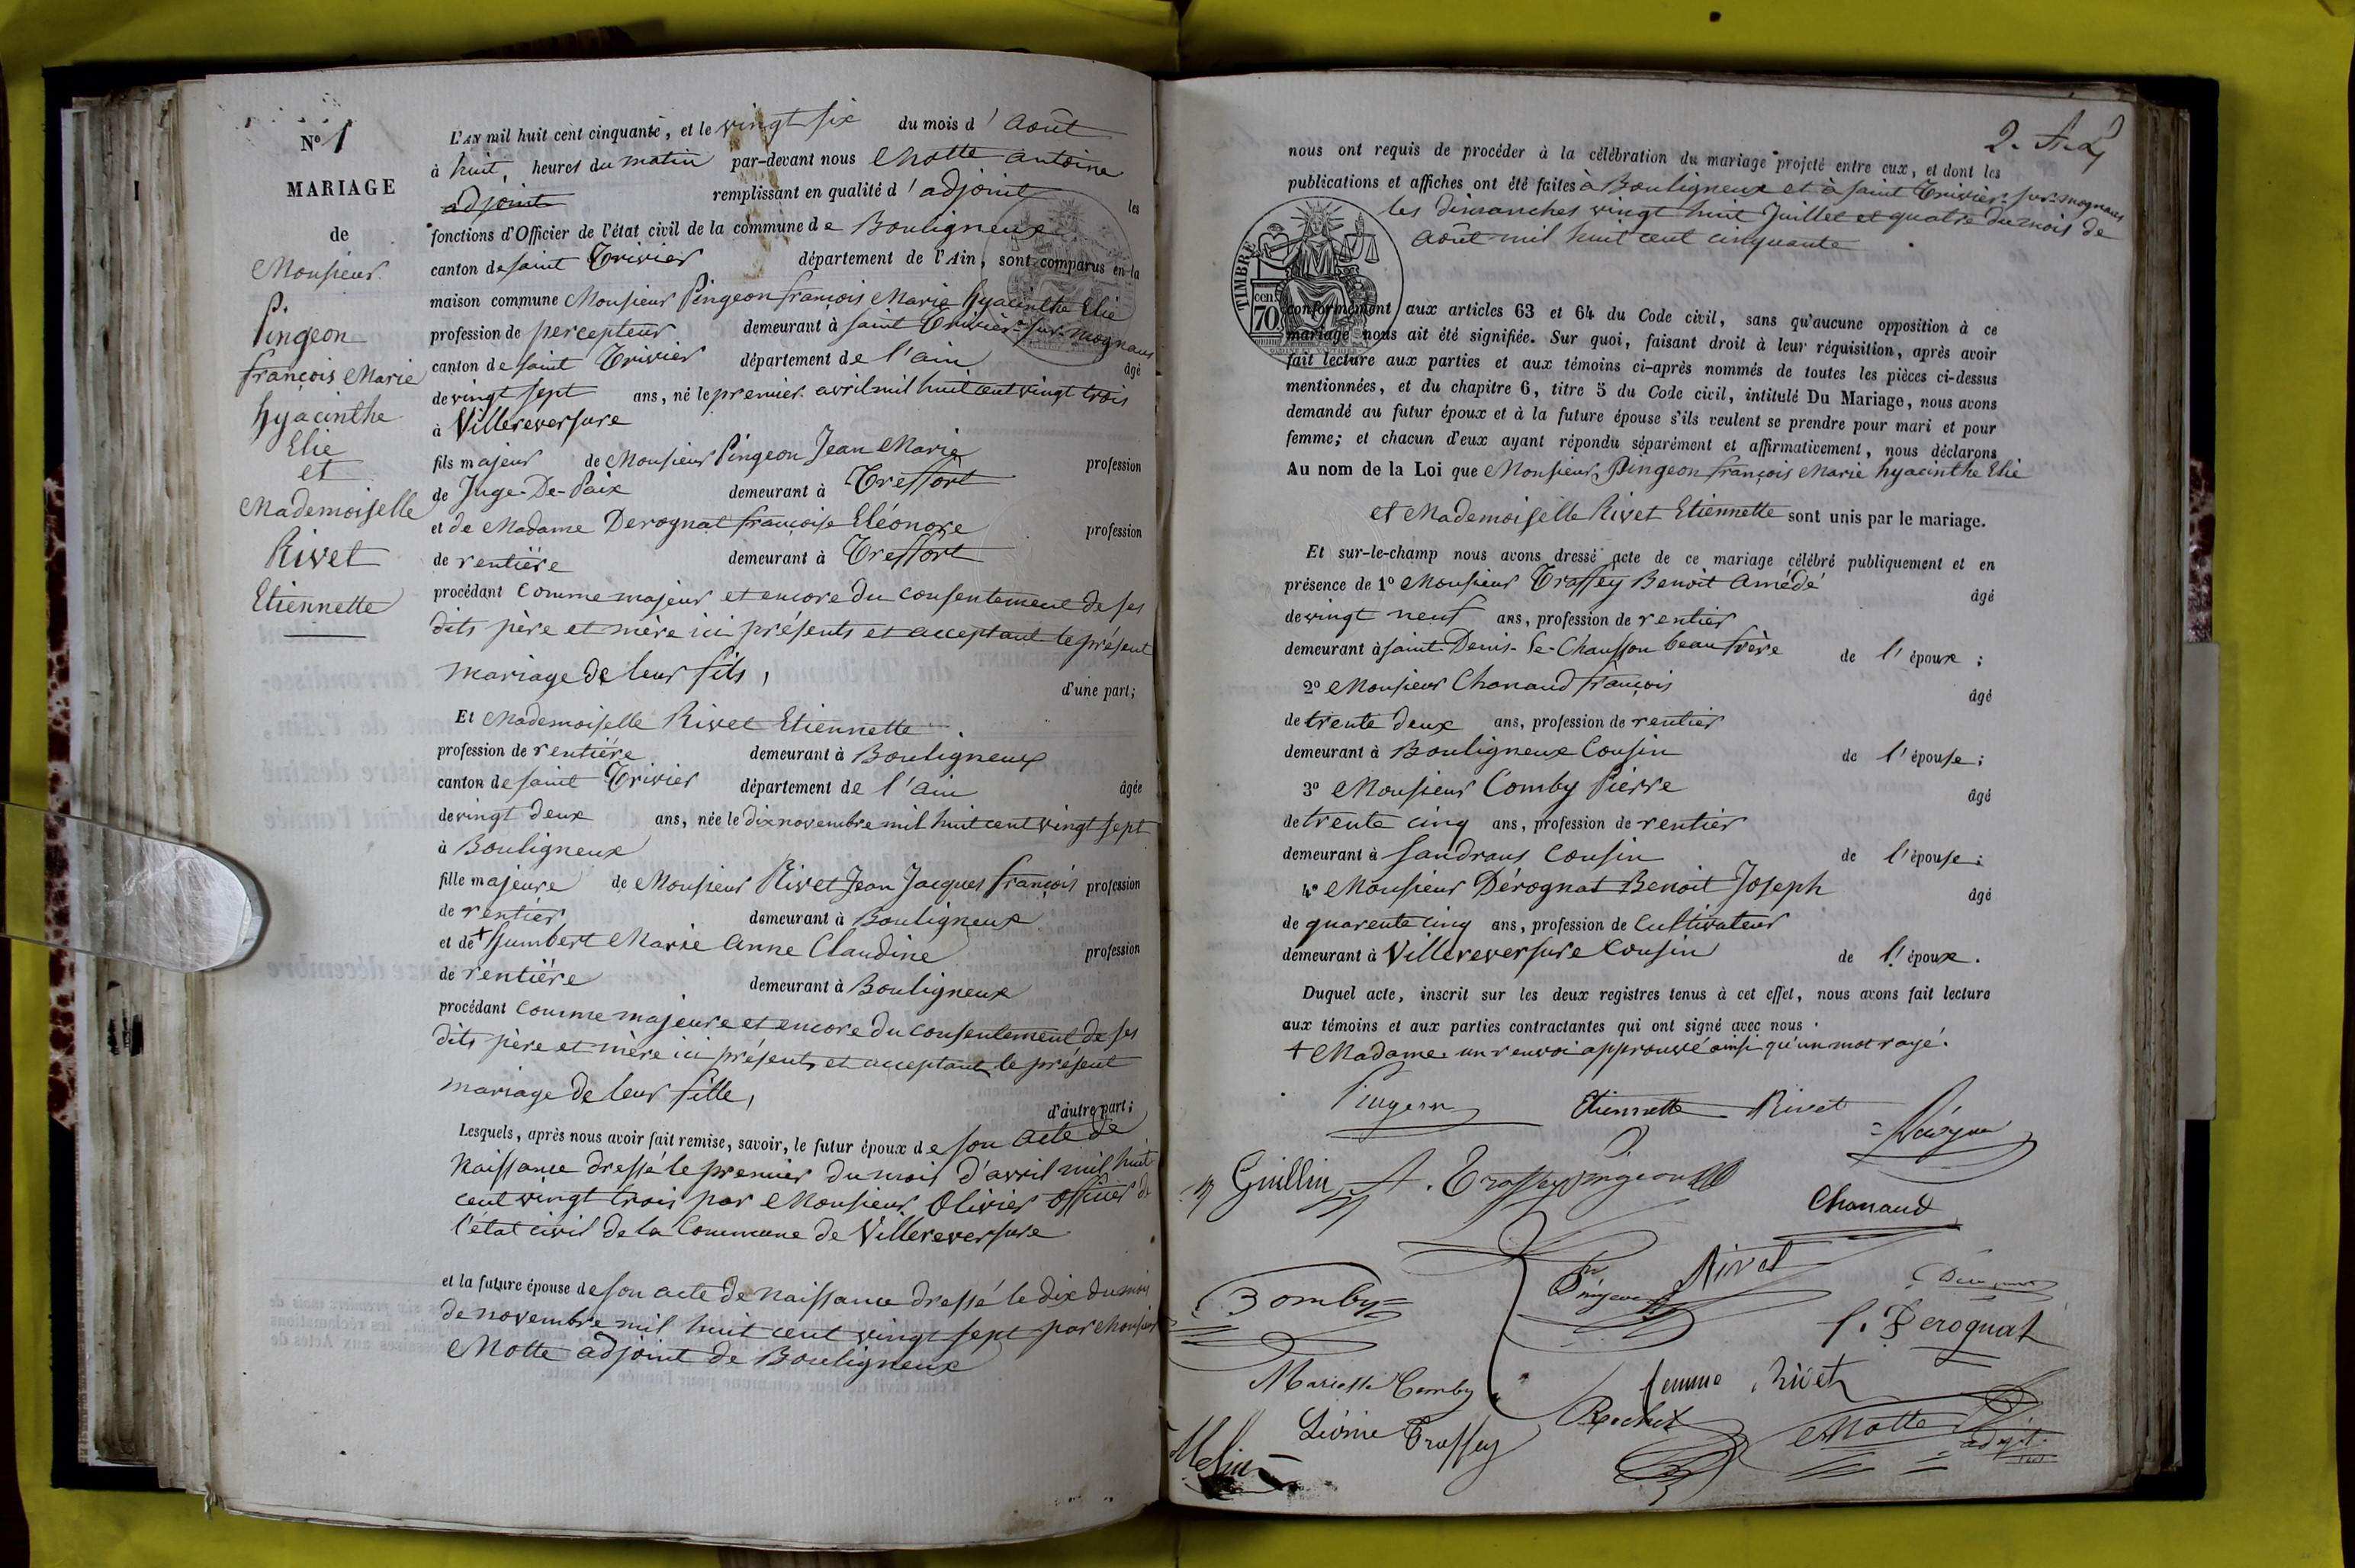 N° 1
MARIAGE
de
Monsieur
Pingeon
françois Marie
hyacinthe
Elie
et
Mademoiselle
Rivet
Etiennette
L'AN mil huit cent cinquante, et le vingt six du mois d'août
à huit, heures du matin par-devant nous Motte antoine
adjoint remplissant en qualité d'adjoint les
fonctions d'Officier de l'état civil de la commune de Bouligneux
canton de saint Trivier département de l'Ain, sont comparus en la
maison commune Monsieur Pingeon françois Marie hyacinthe Elie
profession de percepteur demeurant à saint Trivier-sur-mognans
canton de saint Trivier département de l'ain âgé
de vingt sept ans, né le premier avril mil huit cent vingt trois
à Villereversure
fils majeur de Monsieur Pingeon Jean Marie profession
de Juge-De-Paix demeurant à Treffort
et de Madame Derognat françoise Eléonore profession
de rentière demeurant à Treffort
procédant comme majeur et encore du consentement de ses
dits père et mère ici présents et acceptant le présent
mariage de leur fils, d'une part;
Et Mademoiselle Rivet Etiennette
profession de rentière demeurant à Bouligneux
canton de saint Trivier département de l'ain âgée
de vingt deux ans, née le dix novembre mil huit cent vingt sept
à Bouligneux
fille majeure de Monsieur Rivet Jean Jacques françois profession
de rentier demeurant à Bouligneux
et de + humbert Marie Anne Claudine profession
de rentière demeurant à Bouligneux
procédant comme majeure et encore du consentement de ses
dits père et mère ici présents et acceptant le présent
mariage de leur fille,
d'autre part;
Lesquels, après nous avoir fait remise, savoir, le futur époux de son acte de
Naissance dressé le premier du mois d'avril mil huit
cent vingt trois par Monsieur Olivier officier de
l'état civil de la Commune de Villereversure
et la future épouse de son acte de naissance dressé le dix du mois
de novembre mil huit cent vingt sept par Monsieur
Motte adjoint de Bouligneux
2.
nous ont requis de procéder à la célébration du mariage projeté entre eux, et dont les
publications et affiches ont été faites à Bouligneux et à saint Trivier-sur-mognans
les dimanches vingt huit Juillet et quatre du mois de
août mil huit cent cinquante
TIMBRE
cen. 70
conformément aux articles 63 et 64 du Code civil, sans qu'aucune opposition à ce
mariage nous ait été signifiée. Sur quoi, faisant droit à leur réquisition, après avoir
fait lecture aux parties et aux témoins ci-après nommés de toutes les pièces ci-dessus
mentionnées, et du chapitre 6, titre 5 du Code civil, intitulé Du Mariage, nous avons
demandé au futur époux et à la future épouse s'ils veulent se prendre pour mari et pour
femme; et chacun d'eux ayant répondu séparément et affirmativement, nous déclarons
Au nom de la Loi que Monsieur Pingeon françois Marie hyacinthe Elie
et Mademoiselle Rivet Etiennette sont unis par le mariage.
Et sur-le-champ nous avons dressé acte de ce mariage célébré publiquement et en
présence de 1° Monsieur Traffey Benoit Amédé âgé
de vingt neuf ans, profession de rentier
demeurant à saint-Denis-le-Chausson beau frère de l'époux;
2° Monsieur Chanaud françois âgé
de trente deux ans, profession de rentier
demeurant à Bouligneux Cousin de l'épouse;
3° Monsieur Comby Pierre âgé
de trente cinq ans, profession de rentier
demeurant à Sandrans Cousin de l'épouse;
4° Monsieur Dérognat Benoit Joseph âgé
de quarente cinq ans, profession de Cultivateur
demeurant à Villereversure Cousin de l'époux.
Duquel acte, inscrit sur les deux registres tenus à cet effet, nous avons fait lecture
aux témoins et aux parties contractantes qui ont signé avec nous.
+ Madame. un renvoi approuvé ainsi qu'un mot rayé.
Pingeon Etiennette Rivet
Guillin A. Traffey Pingeon
Chanaud
Comby Rivet
f. Derognat
Mariette Comby femme Rivet
Rochet
Léonie Traffey Motte adjt.